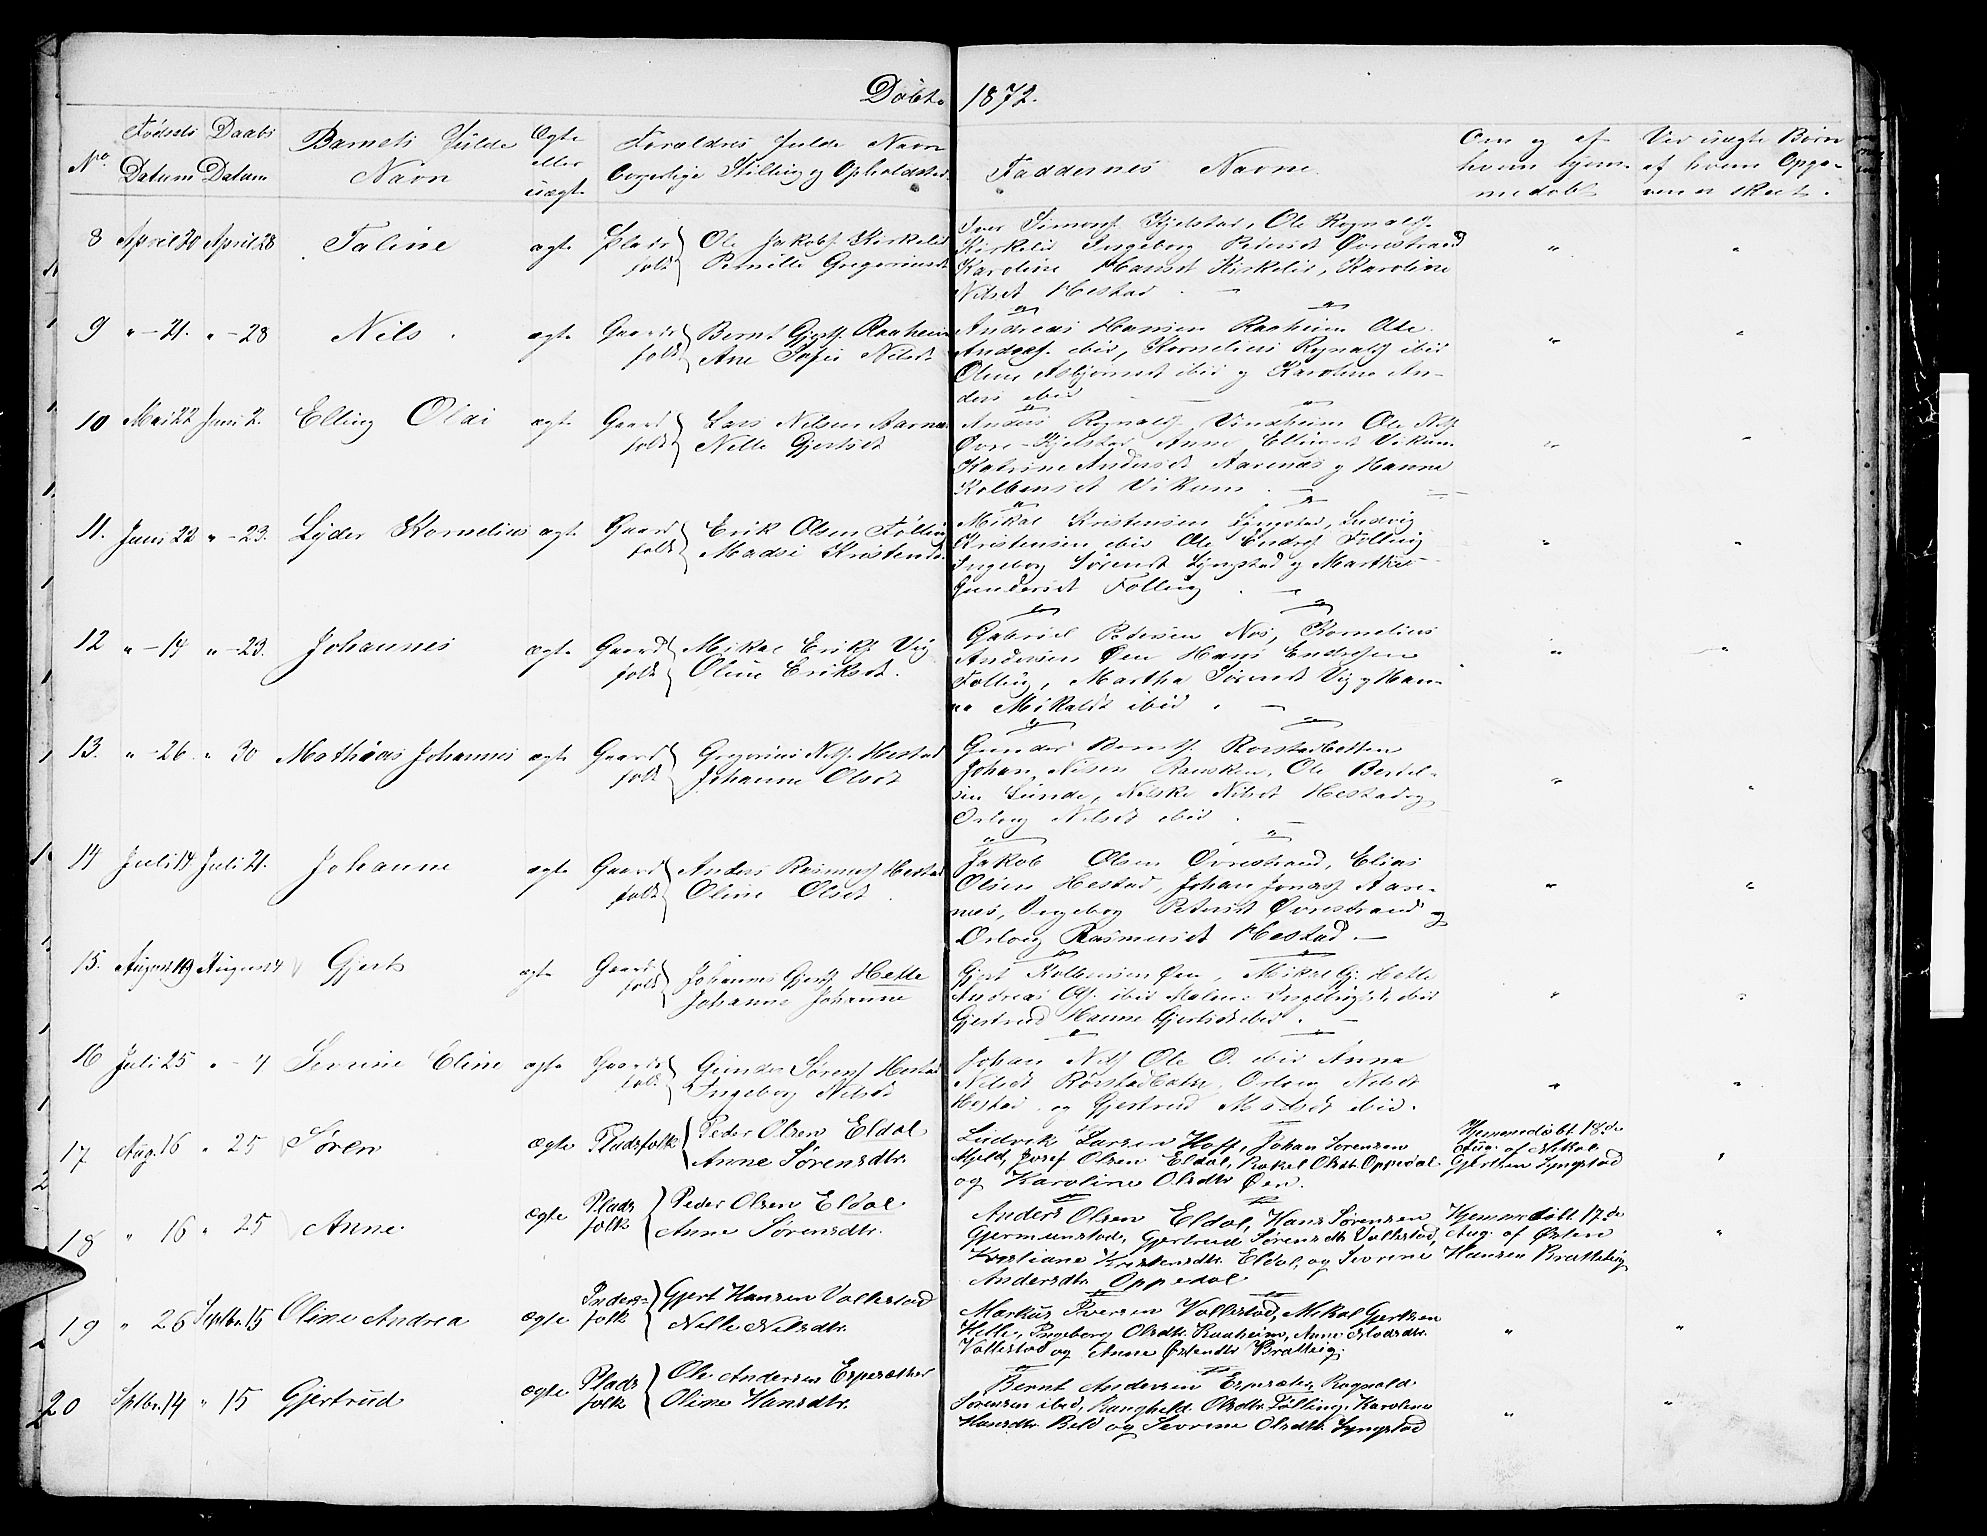 Døbte 1872.
No. Fødsels Datum Daabs Datum Barnets fulde Navn Ægte eller uægte Forældres fulde Navn Borgerlige Stilling og Opholdsted
Faddernes Navne. Om og af hvem hjemmedøbt Ved uægte Børn af hvem Opgaven er skeet.
8 April 20 April 28 Taline ægte Plads folk Ole Jakobs. Kirkelid
Pernille Gregoriusdt.
Iver Simons. Kjelstad, Ole Rognalds.
Kirkelid Ingeborg Pedersdt Øvrestrand
Karoline Hansdt Kirkelid, Karoline
Nilsdt Hestad.
9 " - 21. " - 28 Nils ægte Gaard folk Bernt Gjerts. Raaheim
Ane Sofie Nilsdt.
Andreas Hansen Raaheim Ole
Anders. ibid, Kornelius Rognalds ibid
Oline Asbjørnsdt ibid og Karoline An-
dersdt ibid
10 Mai 22 Juni 2. Elling Olai ægte Gaard folk Lars Nilsen Aarnæs
Nille Gjertsdt
Anders Rognalds. Vindheim Ole Nils.
Øvre-Kjelstad, Anne Ellingsdt Vikum
Katrine Andersdt Aarnæs og Hanna
Kolbensdt Vikum.
11. Juni 22 " - 23. Lyder Kornelius ægte Gaard folk Erik Olsen Følling
Madsi Kristensdt.
Mikal Kristensen Lyngstad, Ludvig
Kristensen ibid Ole Endres. Følling
Ingeborg Sørensdt Lyngstad og Marthe
Gundersdt Følling.
12 " - 14 " - 23. Johannes ægte Gaard folk Mikal Eriks. Vig
Oline Eriksdt.
Gabriel Pedersen Nos, Kornelius
Andersen Øen Hans Endresen
Følling, Martha Sørensdt Vig og Han-
na Mikalsdt ibid.
13. " - 26 " 30 Mathias Johannes ægte Gaard folk Gregorius Nils. Hestad
Johanne Olsdt
Gunder Bernts. Rorstadbotten
Johan Nilsen Ramsken, Ole Bertel-
sen Sunde, Nilske Nilsdt Hestad og
Orloug Nilsdt ibid.
14 Juli 14 Juli 21. Johanne ægte Gaard folk Anders Rasmus. Hestad
Oline Olsdt.
Jakob Olsen Øvrestrand, Elias
Olsen Hestad, Johan Jonass. Aar-
næs, Ingeborg Petersdt Øvrestrand og
Orloug Rasmusdt Hestad.
15. August 19 August 4 Gjert ægte Gaard folk Johannes Gjerts. Helle
Johanne Johanne
Gjert Kolbensen Øen, Mikal Gj. Helle
Andreas Ols. ibid Malene Ingebrigtsdt ibid
Gjertrud Hanne Gjertsdt ibid.
16 Juli 25 " - 4 Severine Eline ægte Gaards folk Gunder Sørens. Hestad
Ingeborg Nilsdt
Johan Nils. Ole O. ibid Anna
Nilsdt Rørstadbotn, Orloug Nilsdt
Hestad og Gjertrud Madsdt ibid.
17 Aug. 16 " 25 Søren ægte Pladsfolk Peder Olsen Eldal
Anne Sørensdtr.
Ludvik Larsen Hoff, Johan Sørensen
Mjeld, Josef Olsen Eldal, Rakel Olsdtr. Oppedal
og Karoline Olsdtr Øen.
Hjemmedøbt 18de
Aug. af Mikal
Gjertsen Lyngstad
18 " 16 " 25 Anne ægte Plads folk Peder Olsen Eldal
Anne Sørensdtr.
Anders Olsen Eldal, Hans Sørensen
Gjermunstad, Gjertrud Sørensdtr Vallestad,
Kristiane Kristensdtr. Eldal, og Severine
Andersdtr. Oppedal
Hjemmedøbt 17de
Aug. af Østen
Hansen Bratteteig
19 " 26 Septbr. 15 Oline Andrea ægte Inderst folk Gjert Hansen Vallestad
Nille Nilsdtr.
Markus Iversen Vallestad, Mikal Gjertsen
Helle, Ingeborg Olsdtr. Raaheim, Anne Madsdtr.
Vallestad og Anne Østensdtr Bratteig.
20 Septbr. 14 " 15 Gjertrud ægte Plads folk Ole Andersen Espesæther
Oline Hansdtr.
Bernt Andersen Espesæter, Rognald
Sørensen ibid, Ranghild Olsdtr. Følling, Karoline
Hansdtr. Beld og Severine Olsdtr. Lyngstad